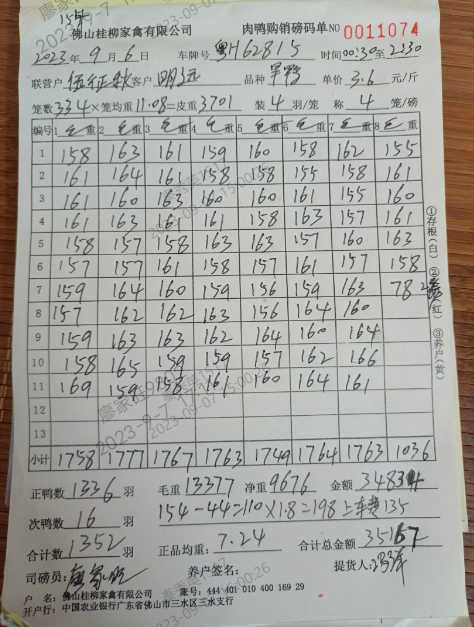 154
佛山桂柳家禽有限公司 肉鸭购销磅码单 NO 0011074
2023年9月6日 车牌号 粤H62815 时间00:30至2:30
联营户 客户 明远 品种 单价 3.6 元/斤
笼数334×笼均重11.08=皮重3701 装4羽/笼 称4笼/磅
编号 1毛重 2毛重 3毛重 4毛重 5毛重 6毛重 7毛重 8毛重
1 158 163 161 159 160 158 162 155
2 161 164 161 158 158 155 158 161
3 161 160 163 160 160 161 155 160
4 161 163 161 161 158 163 157 161
5 158 157 158 163 163 157 160 163
6 157 157 161 158 157 161 157 158
7 159 164 160 159 156 159 163 78
8 157 162 162 163 156 164 160
9 159 163 163 162 164 160 164
10 158 165 159 159 157 162 166
11 169 159 158 161 160 164 161
12
13
小计 1758 1777 1767 1763 1749 1764 1763 1036
①存根(白) ②(红) ③养户(黄)
正鸭数 1336 羽 毛重 13377 净重 9676 金额
次鸭数 16 羽 154-44=110×1.8=198 上车费135
合计数 1352 羽 正品均重: 7.24 合计总金额
司磅员: 养户签名: 提货人:
户 名: 佛山桂柳家禽有限公司 账号: 444 401 010 400 169 29
开户行: 中国农业银行广东省佛山市三水区三水支行